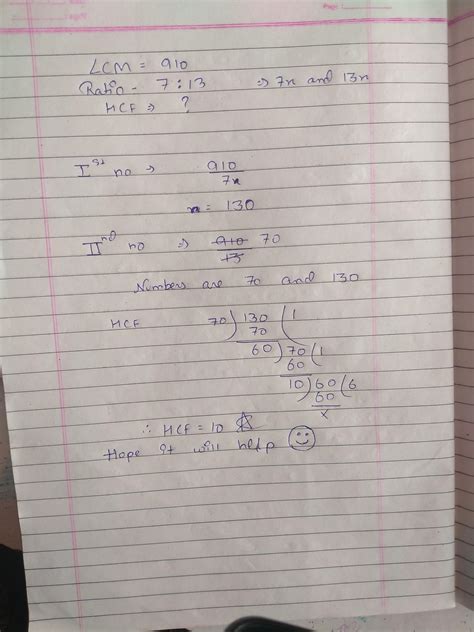 LCM = 910
Ratio - 7 : 13 ⇒ 7x and 13x
HCF ⇒ ?
Ist no ⇒ 910
7x
x = 130
IInd no ⇒ 910 70
13
Numbers are 70 and 130
HCF 70 ) 130 ( 1
70
60 ) 70 ( 1
60
10 ) 60 ( 6
60
x
∴ HCF = 10
Hope it will help